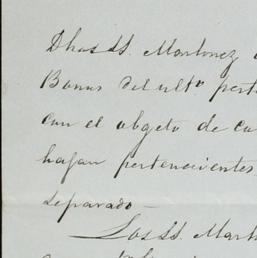 Dhos SS. Martinez
Bonus del ulto. pert
con el obgeto de ca
hafan pertenecientes
separado —
Los SS. Mart